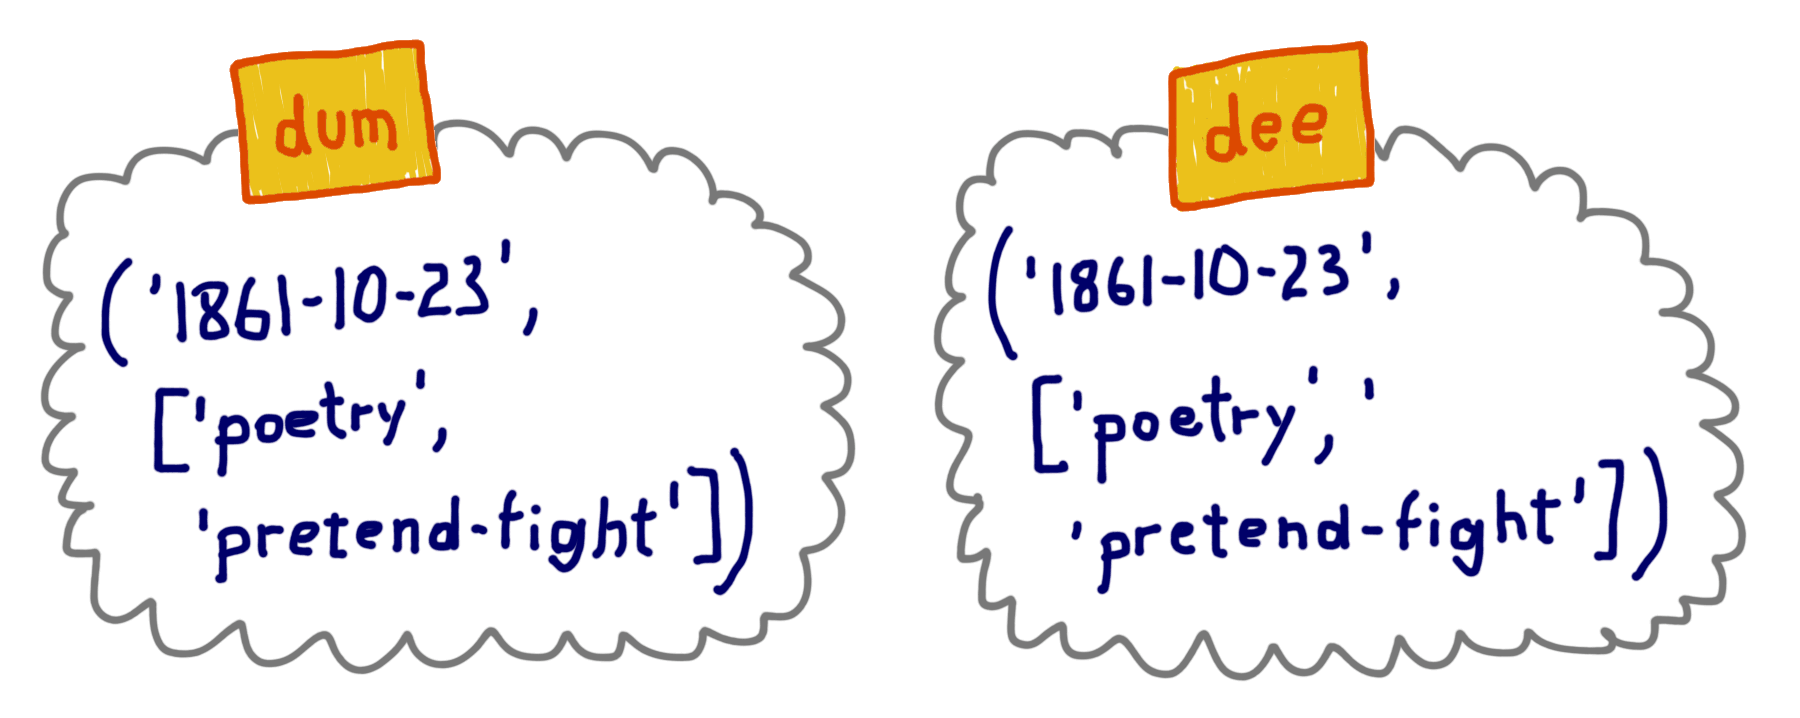 dum
('1861-10-23',
['poetry',
'pretend-fight'])
dee
('1861-10-23',
['poetry','
'pretend-fight'])